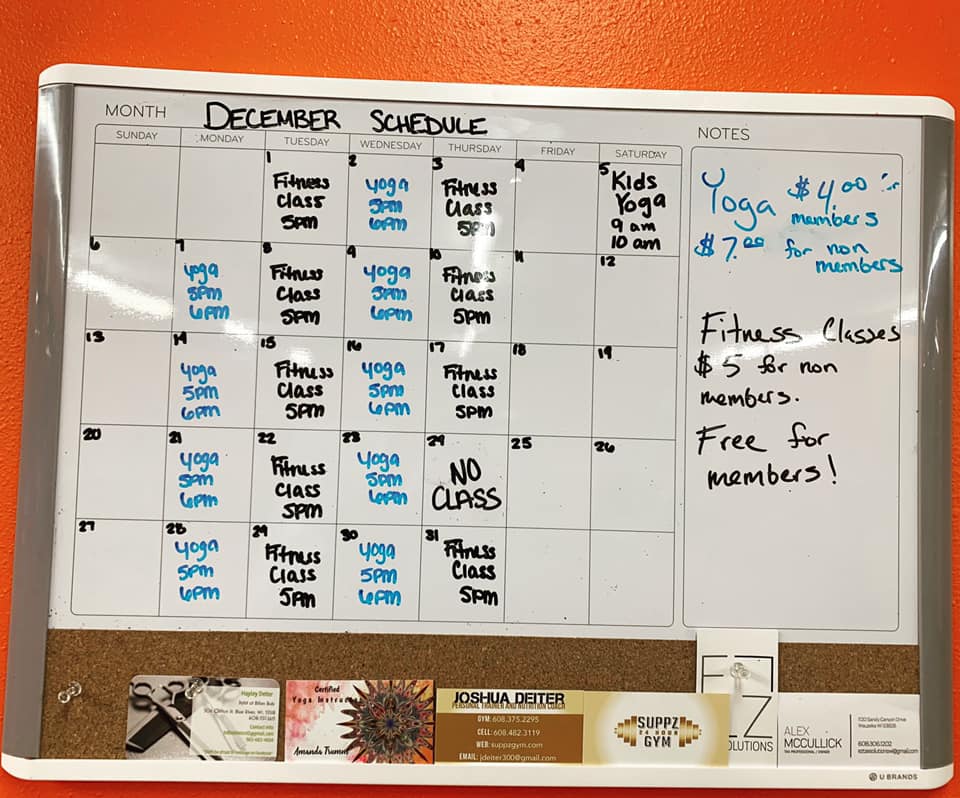 MONTH DECEMBER SCHEDULE
SUNDAY MONDAY TUESDAY WEDNESDAY THURSDAY FRIDAY SATURDAY
1
Fitness
Class
5pm
2
yoga
5pm
6pm
3
Fitness
Class
5pm
4
5
Kids
Yoga
9 am
10 am
6
7
yoga
5pm
6pm
8
Fitness
Class
5pm
9
yoga
5pm
6pm
10
Fitness
Class
5pm
11
12
13
14
yoga
5pm
6pm
15
Fitness
Class
5pm
16
yoga
5pm
6pm
17
Fitness
Class
5pm
18
19
20
21
yoga
5pm
6pm
22
Fitness
Class
5pm
23
yoga
5pm
6pm
24
NO
CLASS
25
26
27
28
yoga
5pm
6pm
29
Fitness
Class
5pm
30
yoga
5pm
6pm
31
Fitness
Class
5pm
NOTES
Yoga $4.00 for
members
$7.00 for non
members
Fitness Classes
$5 for non
members.
Free for
members!
Hayley Deiter
Certified
Yoga Instructor
JOSHUA DEITER
PERSONAL TRAINER AND NUTRITION COACH
GYM: 608.375.2295
CELL: 608.482.3119
WEB: suppzgym.com
EMAIL: jdeiter300@gmail.com
SUPPZ
24 HOUR
GYM
EZ
OLUTIONS
ALEX
MCCULLICK
TAX PROFESSIONAL / OWNER
608.306.1202
U BRANDS